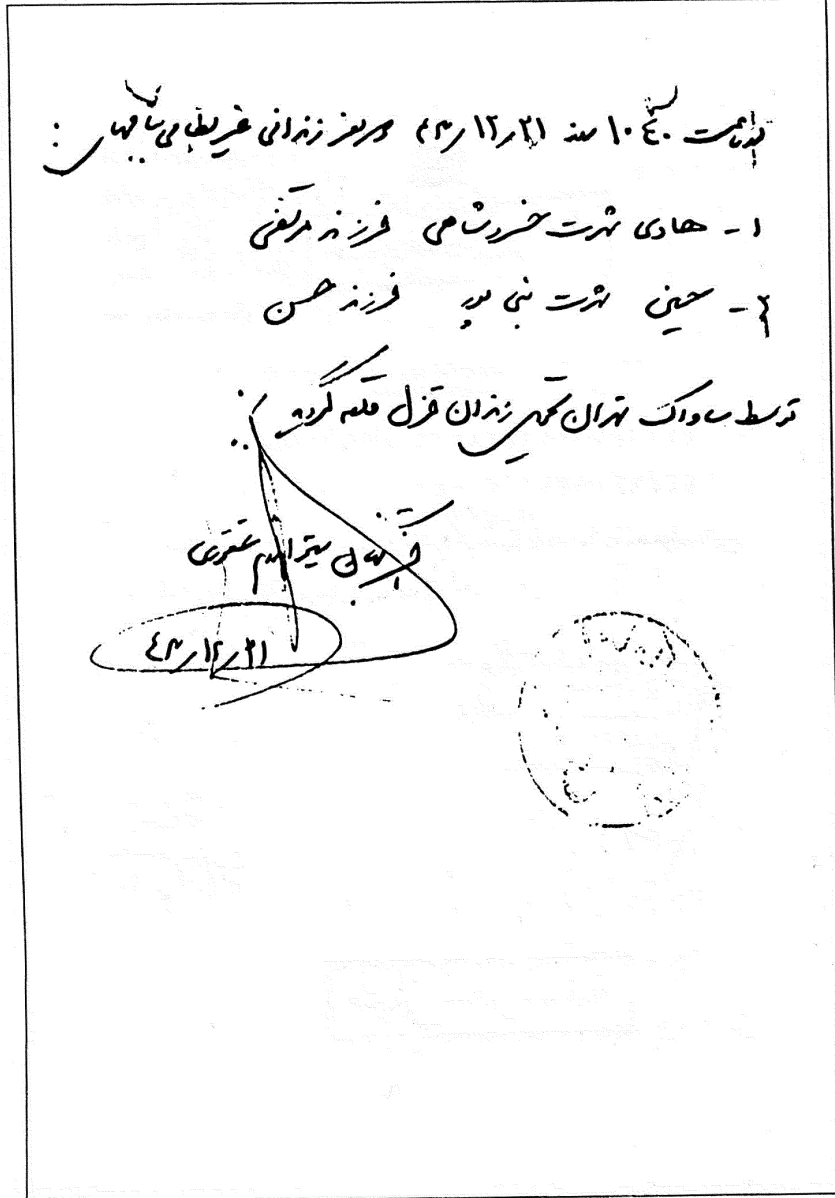 در ساعت ۱۰۴۰ روز ۴۳/۱۲/۲۱ دو نفر زندانی غیر نظامی با نامهای :
۱- هادی شهرت خسروشاهی فرزند مرتضی
۲- حسینی شهرت نبی پور فرزند حسن
توسط ساواک تهران تحویل زندان قزل قلعه گردید
۴۳/۱۲/۲۱